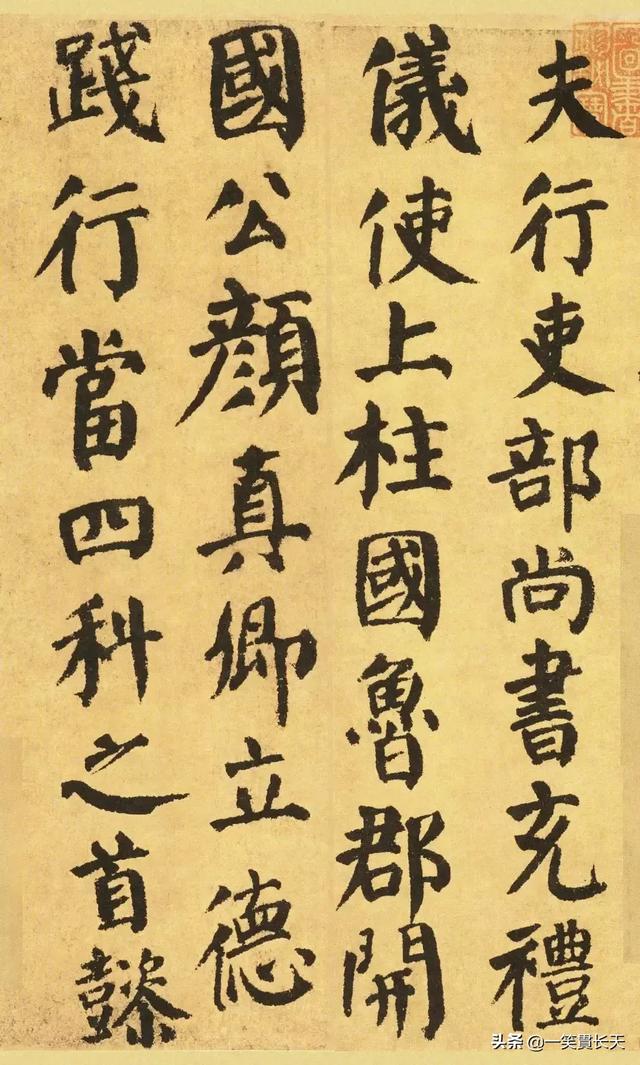 夫行吏部尚書充禮
儀使上柱國魯郡開
國公顏真卿立德
踐行當四科之首懿
头条 @一笑貫长天